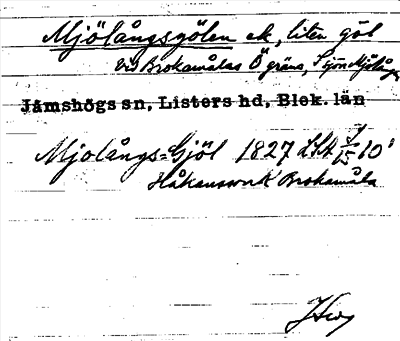 Mjölångsgölen ek, liten göl
vid Brokamålas Ö gräns, S sjön Mjölången
Jämshögs sn, Listers hd, Blek. län
Mjolångs=Gjöl 1827 LSA 10
Håkansowrk Brokamåla